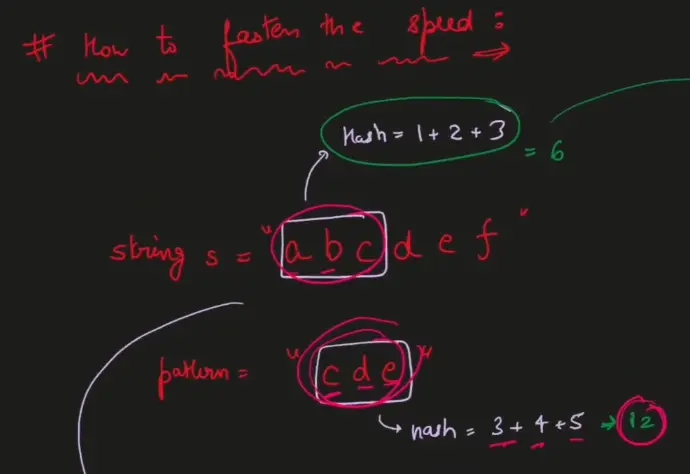 # How to fasten the speed :
Hash = 1 + 2 + 3 = 6
string s = "a b c d e f"
pattern = "c d e"
hash = 3 + 4 + 5 → 12